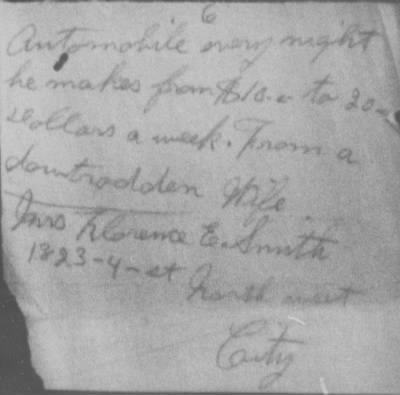 6
Automobile every night
he makes from $18.- to 20-
dollars a week. From a
downtrodden Wife
Mrs Florence E. Smith
1823-4-st
North west
City